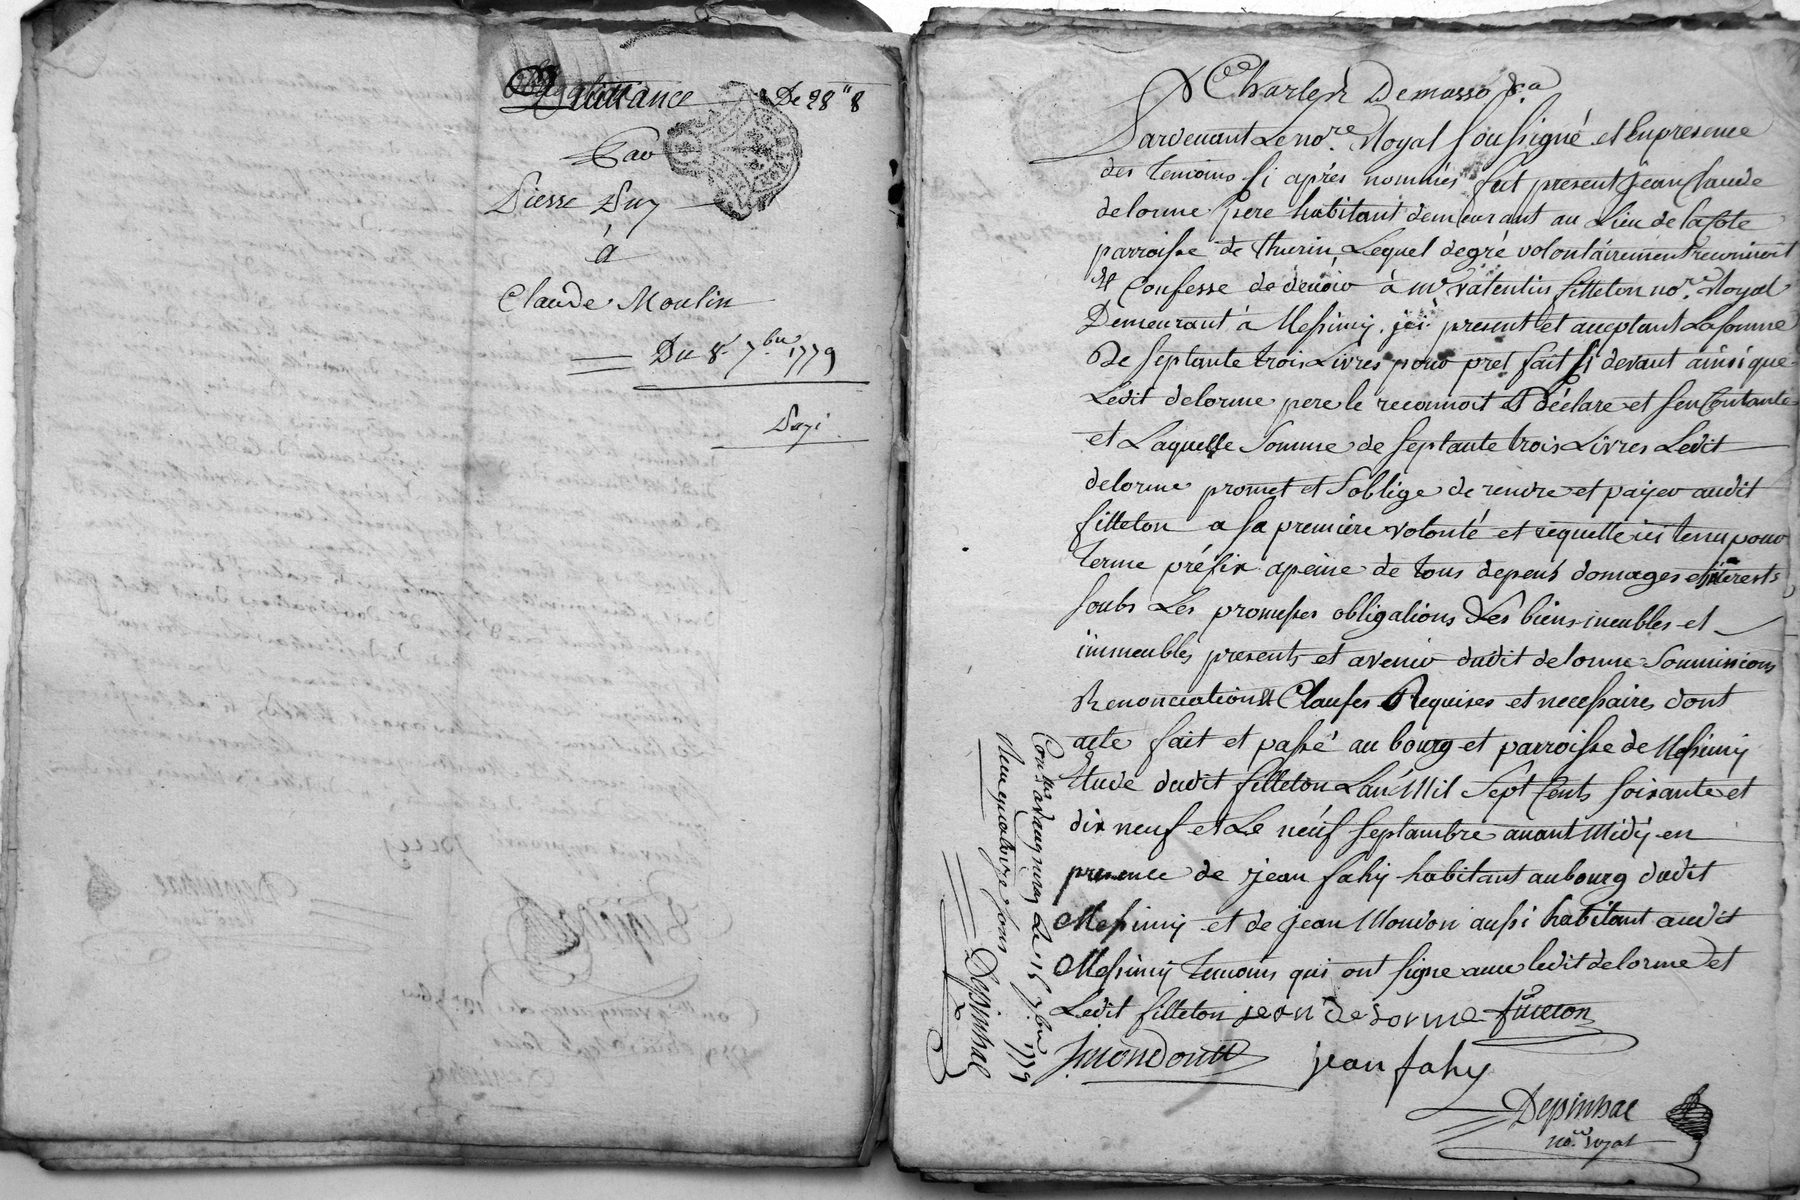 Quittance De 28" 8
Par
Pierre Puy
à
Claude Moulin
Du 8 7.bre 1779
Puy
Pardevant Le no.re Royal soussigné et En presence
des temoins si après nommés fut present jean Claude
delorme pere habitant demeurant au Lieu de la Cote
parroisse de thurin Lequel de gré volontairement reconnoit
et Confesse de devoir à m.e valentin filleton no.re Royal
Demeurant à Messimy. jci present et acceptant La somme
De septante trois Livres pour pret fait si devant ainsi que
Ledit delorme pere le reconnoit et déclare et s'en Contante
et Laquelle Somme de septante trois Livres Ledit
delorme promet et s'oblige de rendre et paÿer audit
filleton a sa première volonté et requette ici tenu pour
terme préfix apeine de tous depens domages et interests
soubs Les promesses obligations Des biens meubles et
immeubles presents et avenir dudit delorme Soumissions
Renonciations et Clauses Requises et necessaires dont
acte fait et passé au bourg et parroisse de Messimy
Etude dudit filleton L'an Mil Sept Cents soixante et
dix neuf et Le neuf septambre avant Midy en
presence de jean fahy habitant au bourg dudit
Messimy et de jean Mondon aussi habitant audit
Messimy temoins qui ont signe avec ledit delorme et
Ledit filleton jean delorme filleton
J. mondon jean fahy
Depinhac
no.re royal
Con.lé a vaugneray Le 15 7.bre 1779
Reçu quatorze sous
Depinhac